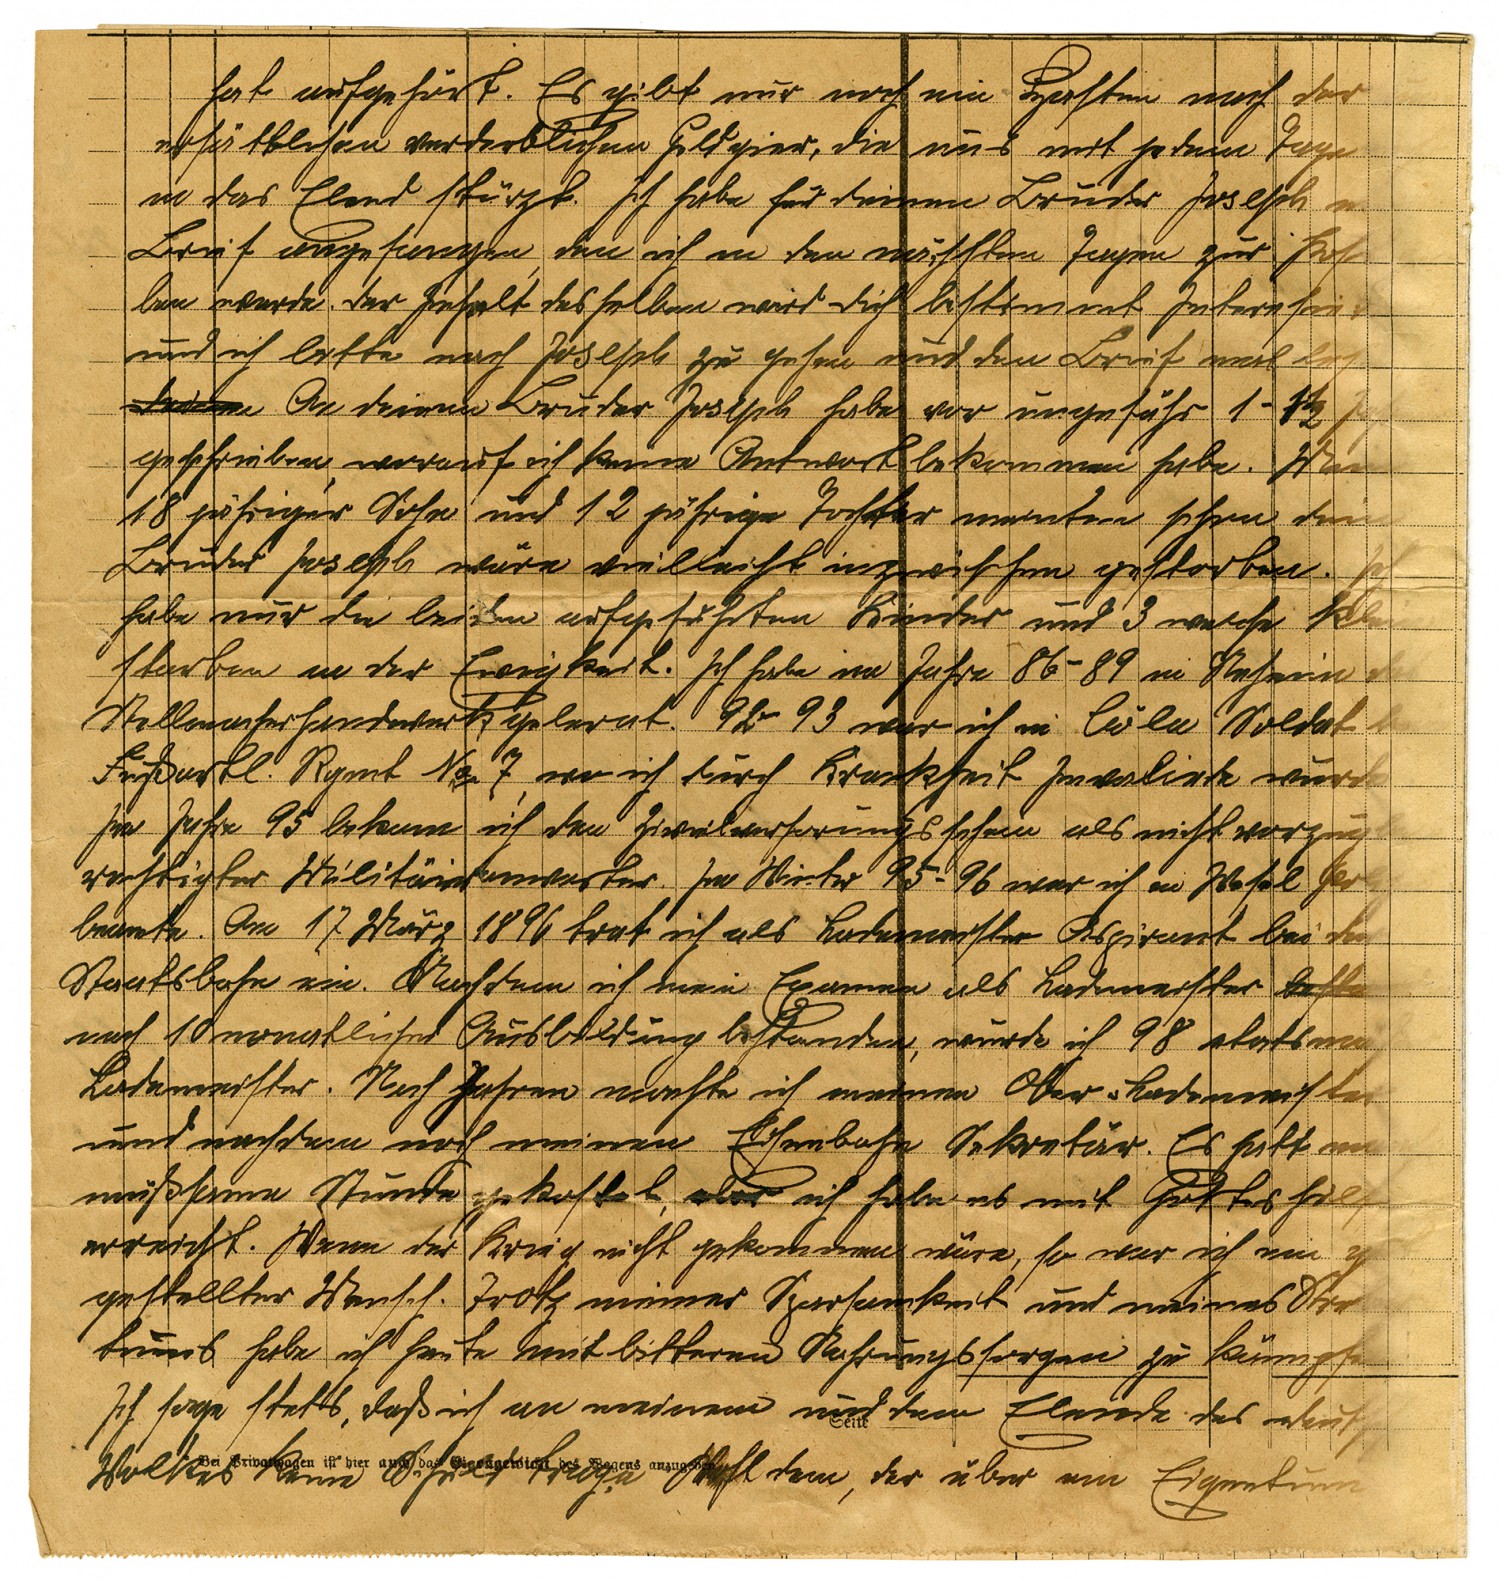 hat aufgehört. Es gibt nur noch ein Hasten nach der
verderblichen Geldgier, die uns mit jedem Tage
in das Elend stürzt. Ich habe für deinen Bruder Joseph
Brief angefangen, den ich in den nächsten Tagen zur
ben werde. Der Inhalt desselben wird dich bestimmt
und ich bitte nach Joseph zu gehen und den Brief mal
An deinen Bruder Joseph habe vor ungefähr 1-1½
geschrieben, worauf ich keine Antwort bekommen habe.
18 jähriger Sohn und 12 jährige Tochter meinten schon
Bruder Joseph wäre vielleicht inzwischen gestorben. Ich
habe nur die beiden aufgeführten Kinder und 3 welche
starben in der Ewigkeit. Ich habe im Jahre 86-89 in Neheim
Stellmacherhandwerk gelernt. 92-93 war ich in Cöln Soldat
Fußartl. Rgmt No 7, wo ich durch Krankheit Invalide wurde
Im Jahre 95 bekam ich den Zivilversorungsschein als nicht
rechtigter Militäranwärter. Im Winter 95-96 war ich in Wesel
beamte. Am 17 März 1896 trat ich als Lademeister Aspirant bei der
Staatsbahn ein. Nachdem ich mein Examen als Lademeister
nach 10 monatlicher Ausbildung bestanden, wurde ich 98
Lademeister. Nach Jahren machte ich meinen Ober-Lademeister
und nachdem noch meinen Eisenbahn Sekretär. Es hatt
mühsame Stunde gekostet, aber ich habe es mit Gottes
erreicht. Wenn der Krieg nicht gekommen wäre, so war ich ein
gestellter Mensch. Trotz meiner Sparsamkeit und meines
tums habe ich heute mit bitteren Nahrungssorgen zu
Ich sage stets, daß ich an meinem und dem Elende des
Seite
Volkes keine Schuld trage. dem, der über ein Eigentum
Bei Privatwagen ist hier auch das Eigengewicht des Wagens anzugeben